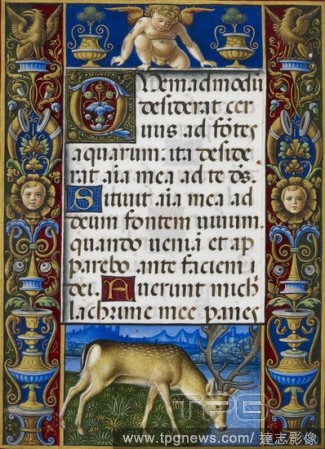 Quemadmodū
desiderat cer
uus ad fōtes
aquarum: ita deside
rat aīa mea ad te ds̄.
Sitiuit aīa mea ad
deum fontem uiuum.
quando ueniā et ap
parebo ante faciem
dei. Fuerunt mich
lachrime mee panes
TPG
www.tpgnews.com/ 達志影像